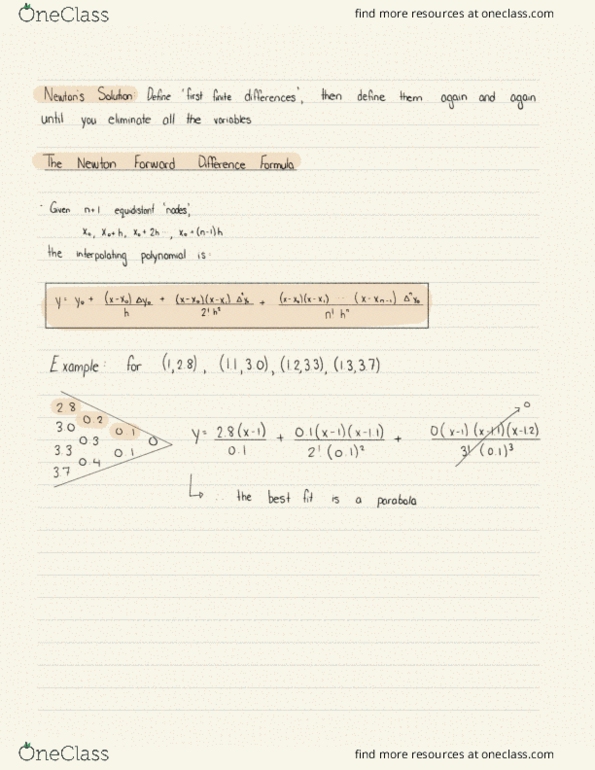 OneClass find more resources at oneclass.com
Newton's Solution: Define 'first finite differences', then define them again and again
until you eliminate all the variables
The Newton Forward Difference Formula
· Given n+1 equidistant 'nodes',
x₀, x₀+h, x₀+2h ..., x₀+(n-1)h
the interpolating polynomial is:
y = y₀ + (x-x₀)Δy₀/h + (x-x₀)(x-x₁)Δ²y₀/2!h² + (x-x₀)(x-x₁) ... (x-xₙ₋₁)Δⁿy₀/n!hⁿ
Example: for (1,2.8), (1.1,3.0), (1.2,3.3), (1.3,3.7)
2.8
3.0 0.2
3.3 0.3 0.1
3.7 0.4 0.1 0
y = 2.8(x-1)/0.1 + 0.1(x-1)(x-1.1)/2!(0.1)² + 0(x-1)(x-1.1)(x-1.2)/3!(0.1)³ 0
∴ the best fit is a parabola
OneClass find more resources at oneclass.com